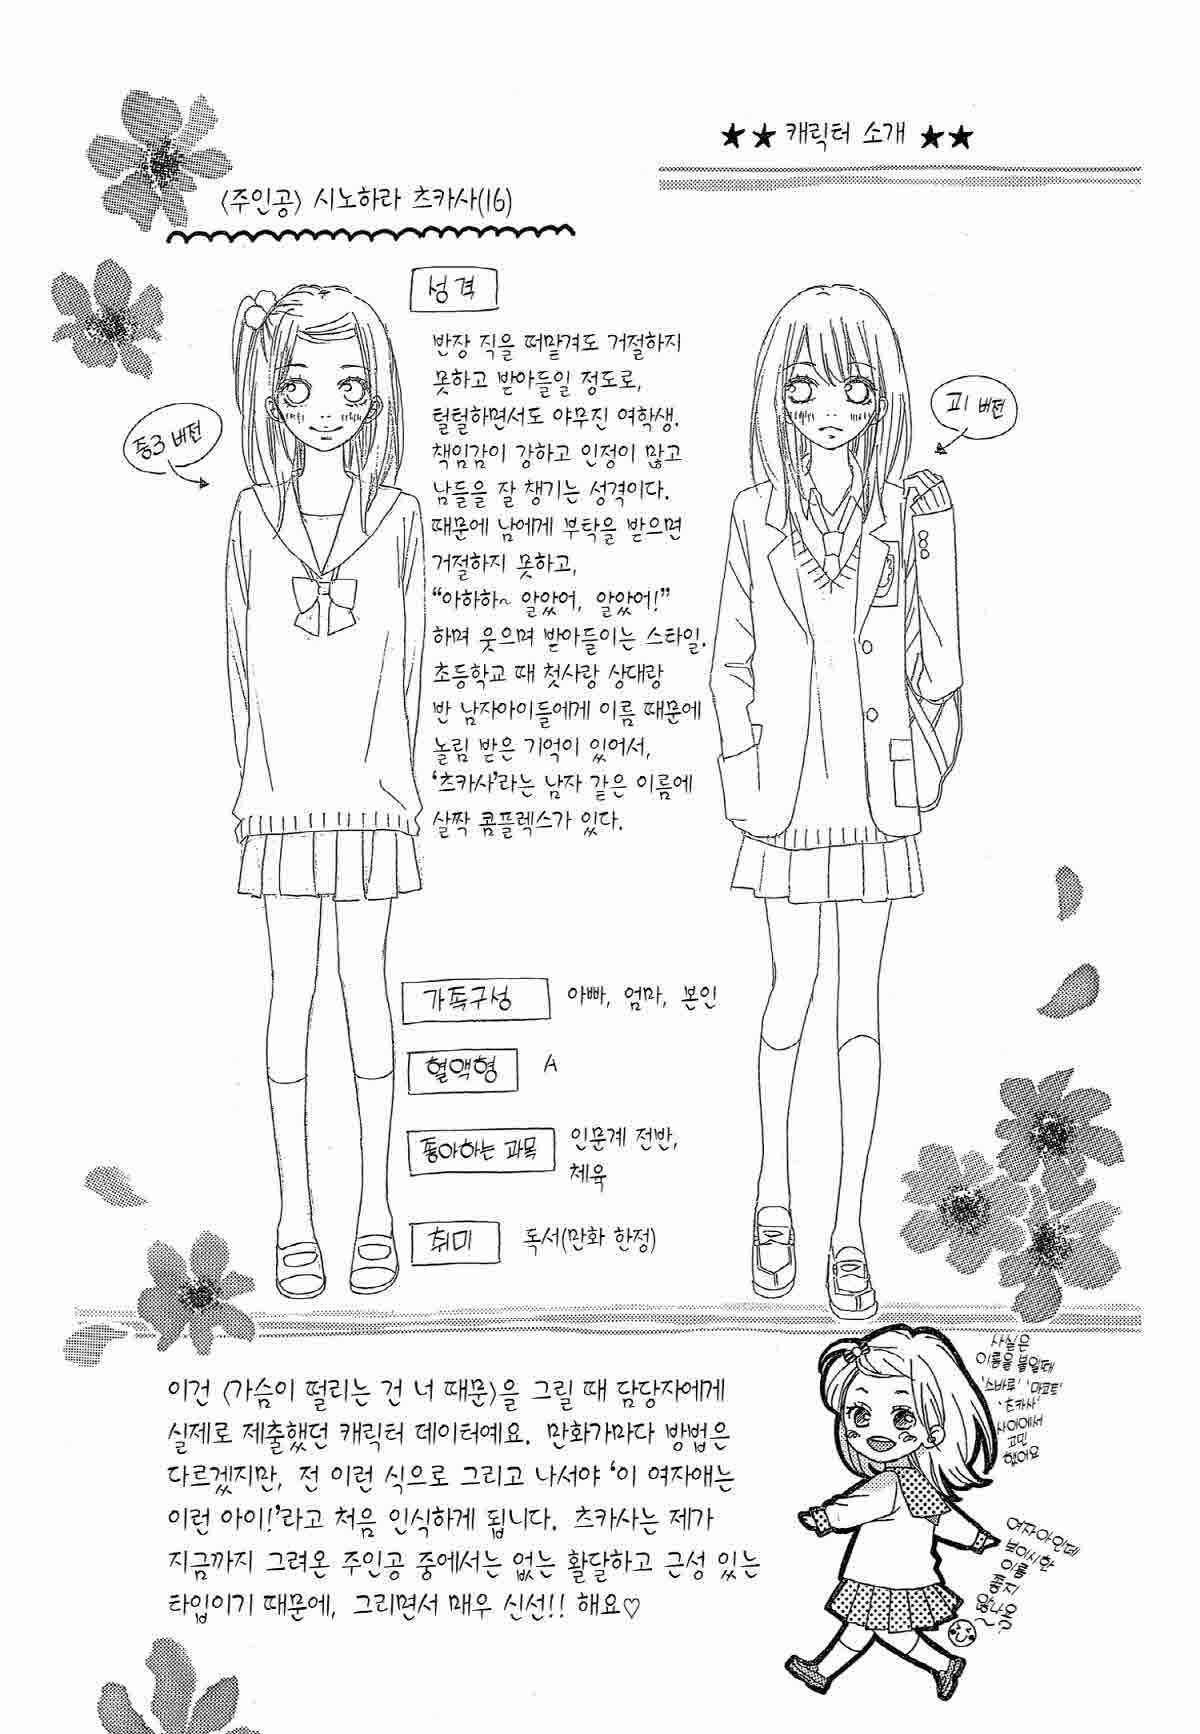 ★★ 캐릭터 소개 ★★
〈주인공〉 시노하라 츠카사(16)
성격
반장 직을 떠맡겨도 거절하지
못하고 받아들일 정도로,
털털하면서도 야무진 여학생.
책임감이 강하고 인정이 많고
남들을 잘 챙기는 성격이다.
때문에 남에게 부탁을 받으면
거절하지 못하고,
“아하하~ 알았어, 알았어!”
하며 웃으며 받아들이는 스타일.
초등학교 때 첫사랑 상대랑
반 남자아이들에게 이름 때문에
놀림 받은 기억이 있어서,
‘츠카사’라는 남자 같은 이름에
살짝 콤플렉스가 있다.
중3 버전
고1 버전
가족구성 아빠, 엄마, 본인
혈액형 A
좋아하는 과목 인문계 전반,
체육
취미 독서(만화 한정)
이건 〈가슴이 떨리는 건 너 때문〉을 그릴 때 담당자에게
실제로 제출했던 캐릭터 데이터예요. 만화가마다 방법은
다르겠지만, 전 이런 식으로 그리고 나서야 ‘이 여자애는
이런 아이!’라고 처음 인식하게 됩니다. 츠카사는 제가
지금까지 그려온 주인공 중에서는 없는 활달하고 근성 있는
타입이기 때문에, 그리면서 매우 신선!! 해요♡
사실은
이름을 붙일때
‘스바루’ ‘마코토’
‘츠카사’
사이에서
고민
했어요
여자아인데
보이시한
이름
좋지
않나요
~?